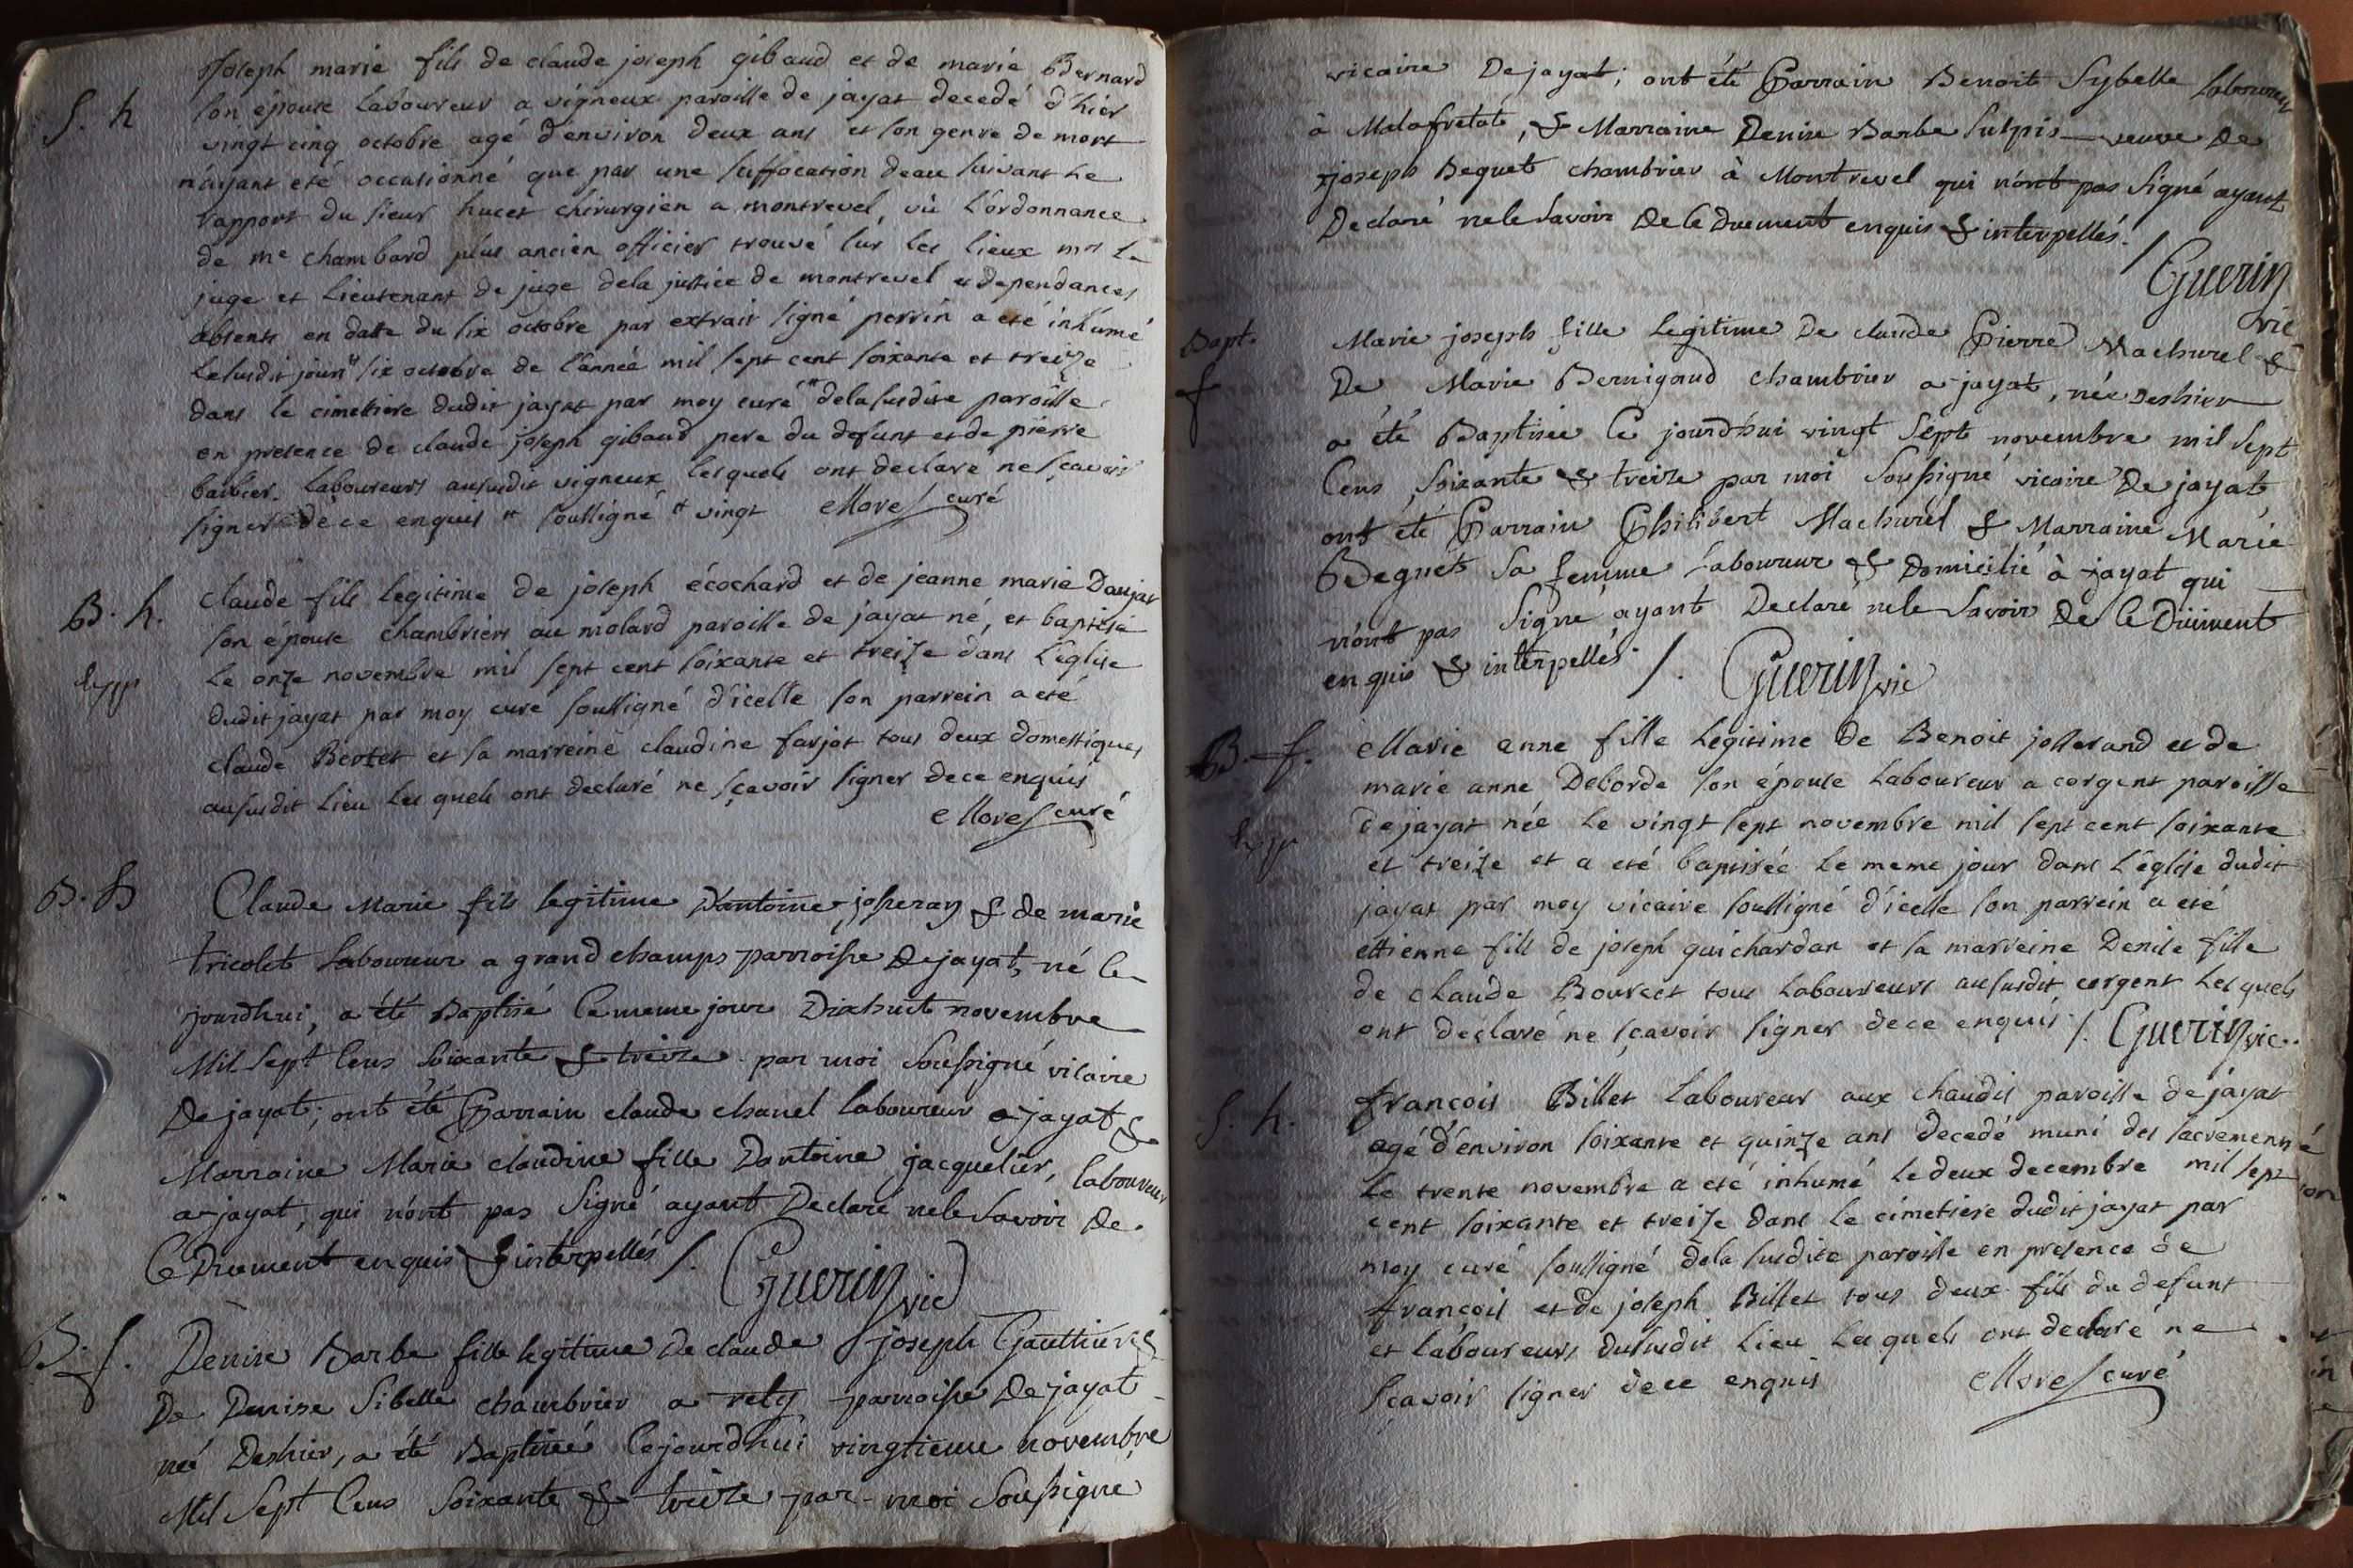 S. h
Joseph marie fils de claude joseph gibaud et de marie Bernard
son épouse Laboureur a vigneux paroisse de jayat decedé d'hier
vingt cinq octobre agé d'environ deux ans et son genre de mort
n'ayant eté occasionné que par une suffocation deau suivant le
rapport du sieur hucet chirurgien a montrevel, vû L'ordonnance
de me chambard plus ancien officier trouvé sur les lieux mrs le
juge et Lieutenant de juge dela justice de montrevel et dependances
absents en datte du six octobre par extrait signé perrin a eté inhumé
Lesusdit jour " six octobre de l'année mil sept cent soixante et treize
dans le cimetiere dudit jayat par moy curé " dela susdite paroisse
en presence de claude joseph gibaud pere du defunt et de pierre
barbier Laboureurs ausudit vigneux lesquels ont declaré ne sçavoir
signer de ce enquis " soussigné " vingt Morel curé
B. h.
Claude fils legitime de joseph écochard et de jeanne marie Daujat
son épouse chambriers au molard paroisse de jayat né, et baptisé
Le onze novembre mil sept cent soixante et treize dans L'eglise
dudit jayat par moy cure soussigné d'icelle son parrein a eté
claude Bertet et sa marreine claudine farjot tous deux domestiques
ausudit Lieu Lesquels ont declaré ne sçavoir signer dece enquis
Morel curé
B. h
Claude Marie fils legitime D'antoine josseran & de marie
tricolet Laboureur a grand champs parroisse Dejayat, né ce
jourdhui, a été Baptisé Ce meme jour Dixhuit novembre
Mil Sept Cens Soixante & treize par moi Soussigné vicaire
De jayat; ont été Parrain claude chanel Laboureur a jayat &
Marraine Marie claudine fille Dantoine jacquelier, laboureur
a jayat, qui n'ont pas Signé ayant Declaré nele Savoir De
Ce Duement enquis & interpellés /. Guerin vic
B. f.
Denise Barbe fille legitime De claude joseph Gauthier &
De Denise Sibelle chambrier a rely parroisse De jayat
née Deshier, a été Baptisée Cejourdhui vingtieme novembre
Mil Sept Cens Soixante & treize par moi Soussigné
vicaire Dejayat; ont été Parrain Benoit Sybelle Laboureur
à Malafretat, & Marraine Denise Barbe Sulpis veuve De
joseph Beguet chambrier à Montrevel qui n'ont pas Signé ayant
Declaré nele Savoir De Ce Duement enquis & interpellés. /
Guerin
vic
Bapt.
f
Marie joseph fille Legitime De claude Pierre Machurel &
De Marie Bernigaud chambrier a jayat, née Deshier
a été Baptisée Ce jourdhui vingt Sept novembre mil Sept
Cens Soixante & treize par moi Soussigné vicaire De jayat
ont été Parrain Philibert Machurel & Marraine Marie
Beguet Sa femme Laboureur & Domicilié à jayat qui
n'ont pas Signé ayant Declaré nele Savoir De Ce Duement
enquis & interpellés /. Guerin vic
B. f.
Marie anne fille Legitime De Benoit josserand et de
marie anne Deborde son épouse Laboureur a corgent paroisse
dejayat née Le vingt sept novembre mil sept cent soixante
et treize et a eté baptisée Le meme jour dans L'eglise dudit
jayat par moy vicaire soussigné d'icelle son parrein a eté
ettienne fils de joseph guichardan et sa marreine Denise fille
de claude Bourcet tous Laboureurs ausudit corgent Lesquels
ont declaré ne sçavoir signer dece enquis /. Guerin vic.
S. h.
françois Billet Laboureur aux chaudis paroisse de jayat
agé d'environ soixante et quinze ans decedé muni des sacremens
Le trente novembre a eté inhumé Le deux decembre mil sept
cent soixante et treize dans Le cimetiere dudit jayat par
moy curé soussigné dela susdite paroisse en presence de
françois et de joseph Billet tous deux fils du defunt
et laboureurs dusudit Lieu Lesquels ont declaré ne
sçavoir signer dece enquis Morel curé